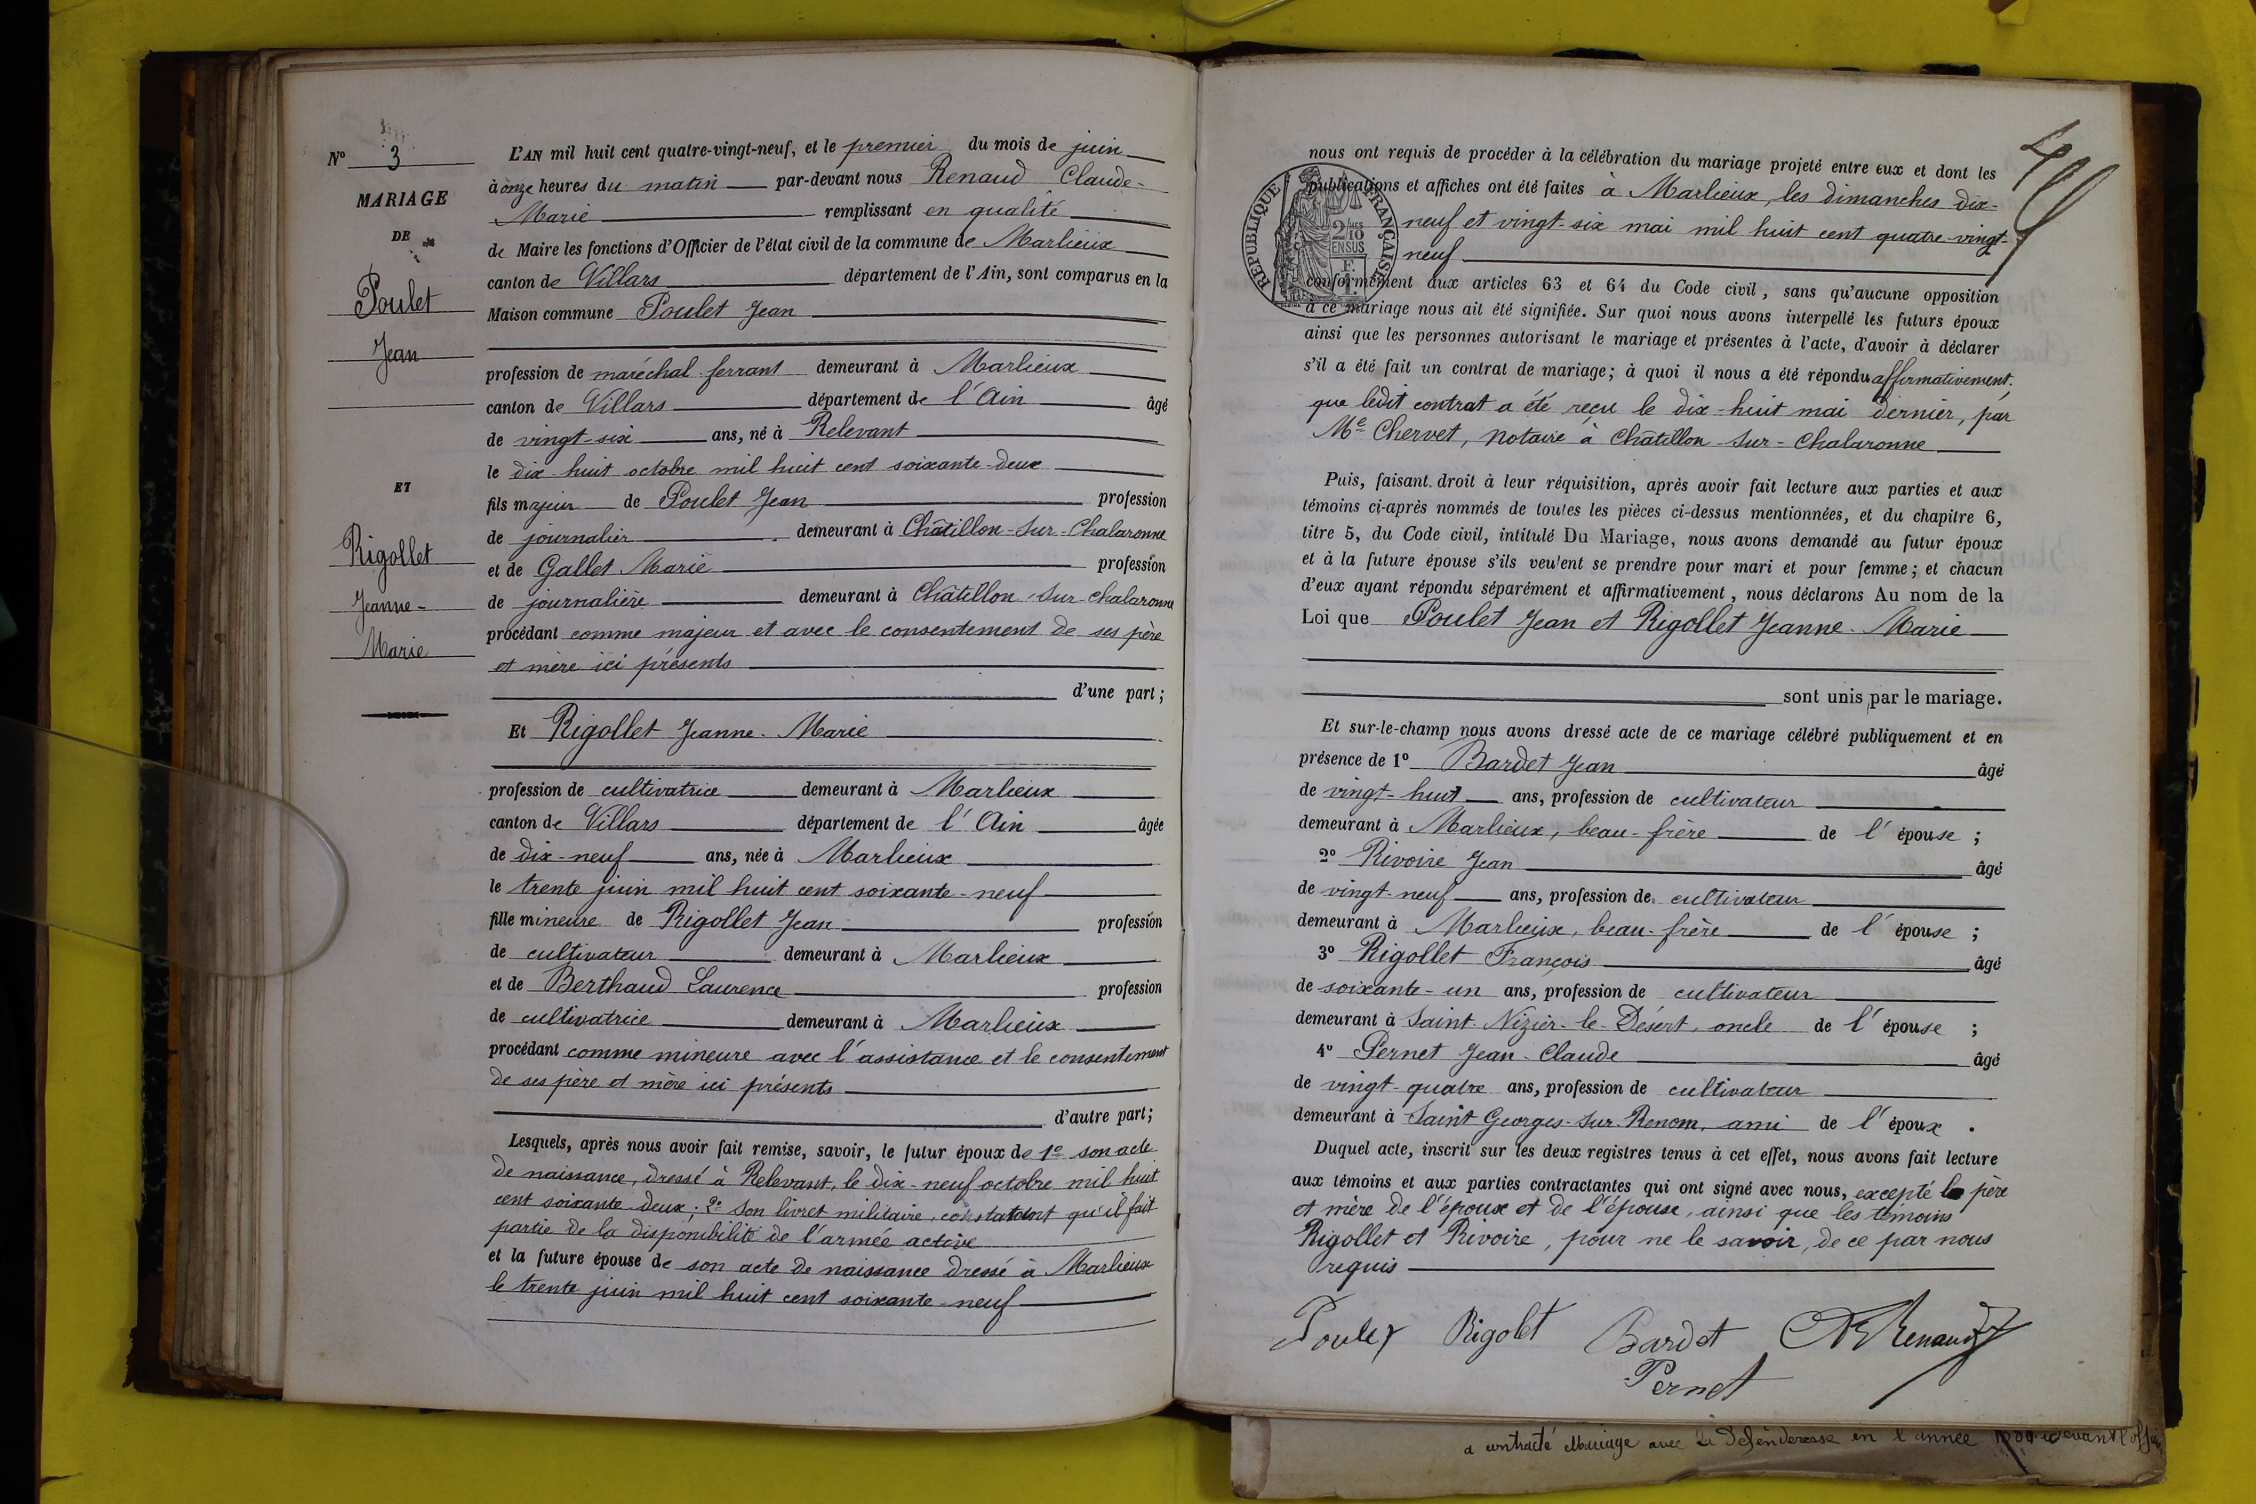 N° 3
MARIAGE
DE
Poulet
Jean
ET
Rigollet
Jeanne-
Marie
L'AN mil huit cent quatre-vingt-neuf, et le premier du mois de juin
à onze heures du matin par-devant nous Renaud Claude-
Marie remplissant en qualité
de Maire les fonctions d'Officier de l'état civil de la commune de Marlieux
canton de Villars département de l'Ain, sont comparus en la
Maison commune Poulet Jean
profession de maréchal-ferrant demeurant à Marlieux
canton de Villars département de l'Ain âgé
de vingt-six ans, né à Relevant
le dix huit octobre mil huit cent soixante-deux
fils majeur de Poulet Jean profession
de journalier demeurant à Châtillon-sur-Chalaronne
et de Gallet Marie profession
de journalière demeurant à Châtillon-sur-chalaronne
procédant comme majeur et avec le consentement de ses père
et mère ici présents
d'une part;
Et Rigollet Jeanne-Marie
profession de cultivatrice demeurant à Marlieux
canton de Villars département de l'Ain âgée
de dix-neuf ans, née à Marlieux
le trente juin mil huit cent soixante-neuf
fille mineure de Rigollet Jean profession
de cultivateur demeurant à Marlieux
et de Berthaud Laurence profession
de cultivatrice demeurant à Marlieux
procédant comme mineure avec l'assistance et le consentement
de ses père et mère ici présents
d'autre part;
Lesquels, après nous avoir fait remise, savoir, le futur époux de 1° son acte
de naissance, dressé à Relevant, le dix-neuf octobre mil huit
cent soixante deux; 2° son livret militaire, constatant qu'il fait
partie de la disponibilité de l'armée active
et la future épouse de son acte de naissance dressé à Marlieux
le trente juin mil huit cent soixante-neuf
nous ont requis de procéder à la célébration du mariage projeté entre eux et dont les
publications et affiches ont été faites à Marlieux, les dimanches dix-
neuf et vingt-six mai mil huit cent quatre-vingt-
neuf
RÉPUBLIQUE FRANÇAISE
2/10
EN SUS
conformément aux articles 63 et 64 du Code civil, sans qu'aucune opposition
à ce mariage nous ait été signifiée. Sur quoi nous avons interpellé les futurs époux
ainsi que les personnes autorisant le mariage et présentes à l'acte, d'avoir à déclarer
s'il a été fait un contrat de mariage; à quoi il nous a été répondu affirmativement.
que ledit contrat a été reçu le dix-huit mai dernier, par
Me Chervet, notaire à Châtillon-sur-Chalaronne
Puis, faisant droit à leur réquisition, après avoir fait lecture aux parties et aux
témoins ci-après nommés de toutes les pièces ci-dessus mentionnées, et du chapitre 6,
titre 5, du Code civil, intitulé Du Mariage, nous avons demandé au futur époux
et à la future épouse s'ils veulent se prendre pour mari et pour femme; et chacun
d'eux ayant répondu séparément et affirmativement, nous déclarons Au nom de la
Loi que Poulet Jean et Rigollet Jeanne-Marie
sont unis par le mariage.
Et sur-le-champ nous avons dressé acte de ce mariage célébré publiquement et en
présence de 1° Bardet Jean âgé
de vingt-huit ans, profession de cultivateur
demeurant à Marlieux, beau-frère de l'épouse;
2° Rivoire Jean âgé
de vingt-neuf ans, profession de cultivateur
demeurant à Marlieux, beau-frère de l'épouse;
3° Rigollet François âgé
de soixante-un ans, profession de cultivateur
demeurant à Saint-Nizier-le-Désert, oncle de l'épouse;
4° Pernet Jean-Claude âgé
de vingt-quatre ans, profession de cultivateur
demeurant à Saint Georges-sur-Renom, ami de l'époux.
Duquel acte, inscrit sur les deux registres tenus à cet effet, nous avons fait lecture
aux témoins et aux parties contractantes qui ont signé avec nous, excepté le père
et mère de l'époux et de l'épouse, ainsi que les témoins
Rigollet et Rivoire, pour ne le savoir, de ce par nous
requis
Poulet Rigolet Bardet Renaud
Pernet
a contracté Mariage avec la défenderesse en l'année devant l'offi